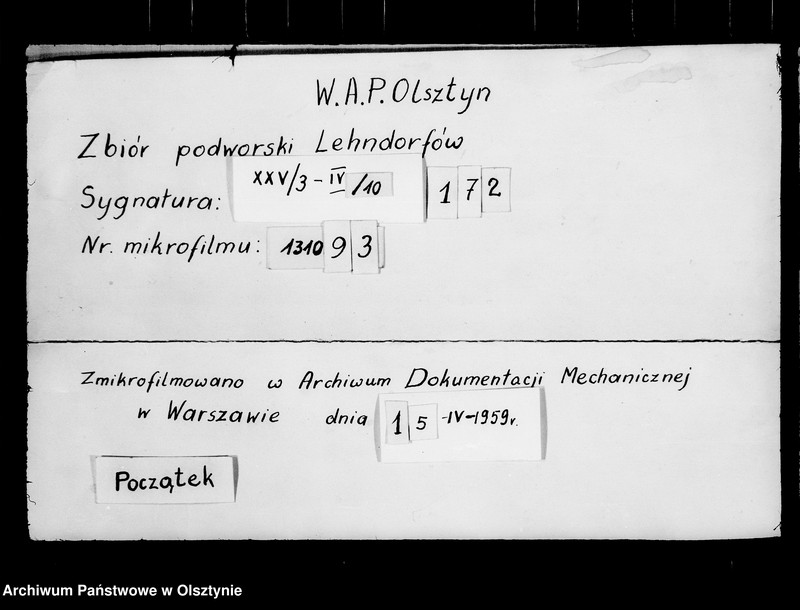 W.A.P. Olsztyn
Zbiór podworski Lehndorfów
Sygnatura: XXV/3 - IV /10 172
Nr. mikrofilmu: 1310 93
Zmikrofilmowano w Archiwum Dokumentacji Mechanicznej
w Warszawie dnia 15 -IV-1959r.
Początek
Archiwum Państwowe w Olsztynie